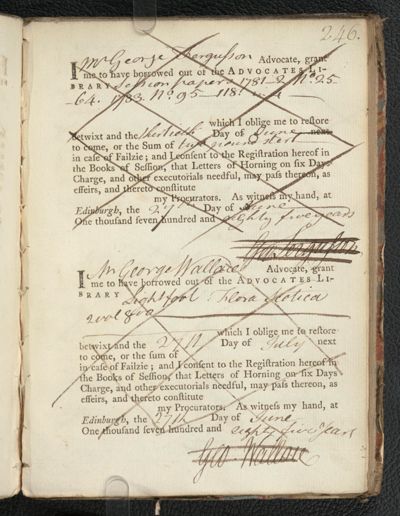 246.
I Mr George Fergusson Advocate, grant
me to have borrowed out of the ADVOCATES LI-
BRARY Session papers 1781-2 No. 25
-64. 1783. No. 95-118.
which I oblige me to restore
betwixt and the thirtieth Day of June next
to come, or the Sum of two pound ster.
in case of Failzie; and I consent to the Registration hereof in
the Books of Session, that Letters of Horning on six Days
Charge, and other executorials needful, may pass thereon, as
effeirs, and thereto constitute
my Procurators. As witness my hand, at
Edinburgh, the Day of June
One thousand seven hundred and eighty five years
Geo Fergusson
I Mr George Wallace Advocate, grant
me to have borrowed out of the ADVOCATES LI-
BRARY Lightfoot Flora Scotica
2 vol 8vo
which I oblige me to restore
betwixt and the 27th Day of July next
to come, or the sum of
in case of Failzie; and I consent to the Registration hereof in
the Books of Session, that Letters of Horning on six Days
Charge, and other executorials needful, may pass thereon, as
effeirs, and thereto constitute
my Procurators. As witness my hand, at
Edinburgh, the 27th Day of June
One thousand seven hundred and eighty five years
Geo Wallace